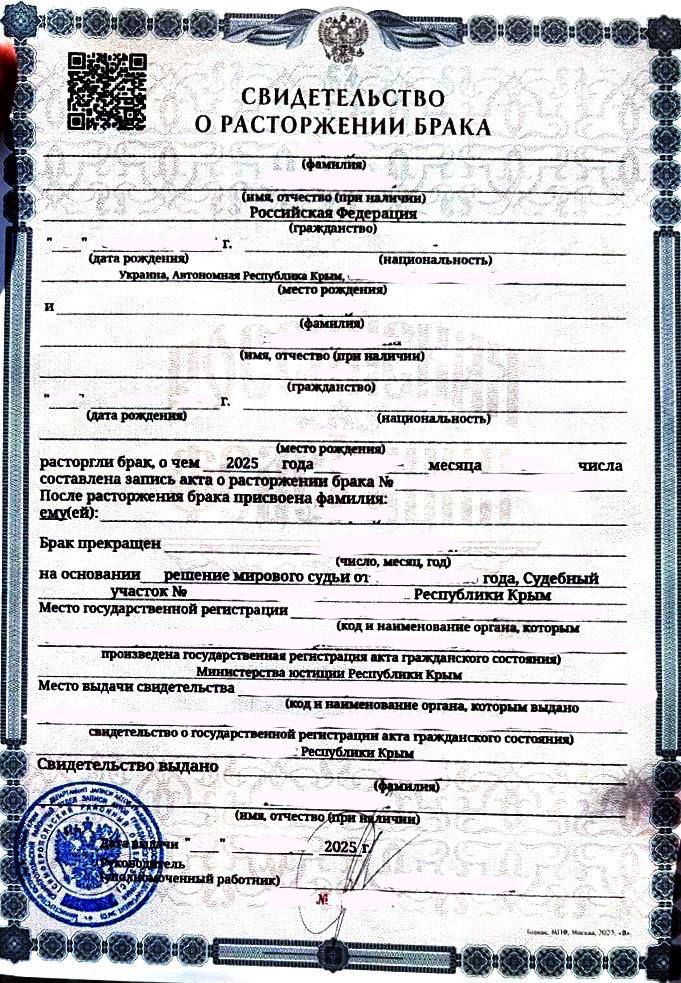 СВИДЕТЕЛЬСТВО
О РАСТОРЖЕНИИ БРАКА
(фамилия)
(имя, отчество (при наличии)
Российская Федерация
(гражданство)
" " г.
(дата рождения) (национальность)
Украина, Автономная Республика Крым,
(место рождения)
и
(фамилия)
(имя, отчество (при наличии)
(гражданство)
" " г.
(дата рождения) (национальность)
(место рождения)
расторгли брак, о чем 2025 года месяца числа
составлена запись акта о расторжении брака №
После расторжения брака присвоена фамилия:
ему(ей):
Брак прекращен
(число, месяц, год)
на основании решение мирового судьи от года, Судебный
участок № Республики Крым
Место государственной регистрации
(код и наименование органа, которым
произведена государственная регистрация акта гражданского состояния)
Министерства юстиции Республики Крым
Место выдачи свидетельства
(код и наименование органа, которым выдано
свидетельство о государственной регистрации акта гражданского состояния)
Республики Крым
Свидетельство выдано
(фамилия)
(имя, отчество (при наличии)
Дата выдачи " " 2025 г.
Руководитель
(уполномоченный работник)
№
МПФ, Москва, 2023, «В».